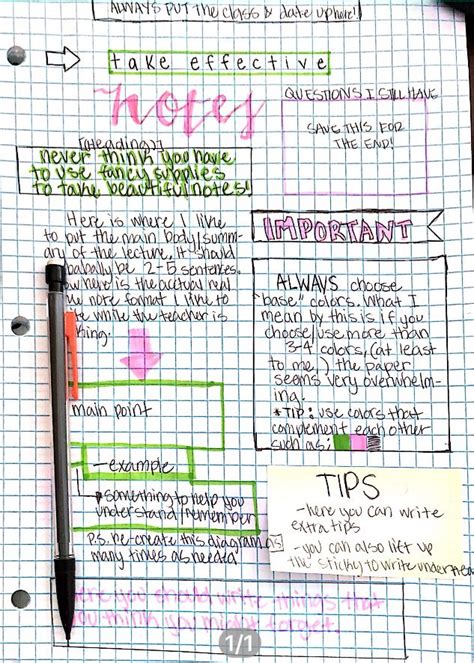 ALWAYS PUT THE CLASS & date up here!
take effective
notes
[(Heading)]
never think you have
to use fancy supplies
to take beautiful notes!
QUESTIONS I STILL HAVE
SAVE THIS FOR
THE END!
Here is where I like
to put the main body/summ-
ary of the lecture, it should
be 2-5 sentences.
here is the actual real
note format I like to
while the teacher is
IMPORTANT
ALWAYS choose
"base" colors. What I
mean by this is if you
choose/use more than
3-4 colors, (at least
to me,) the paper
seems very overwhelm-
ing.
*TIP: use colors that
complement each other
such as:
main point
-example
something to help you
understand/remember
P.S. re-create this diagram as
many times as needed
TIPS
-here you can write
extra tips
-you can also lift up
the sticky to write underneath
you should write things that
you think you might forget.
1/1